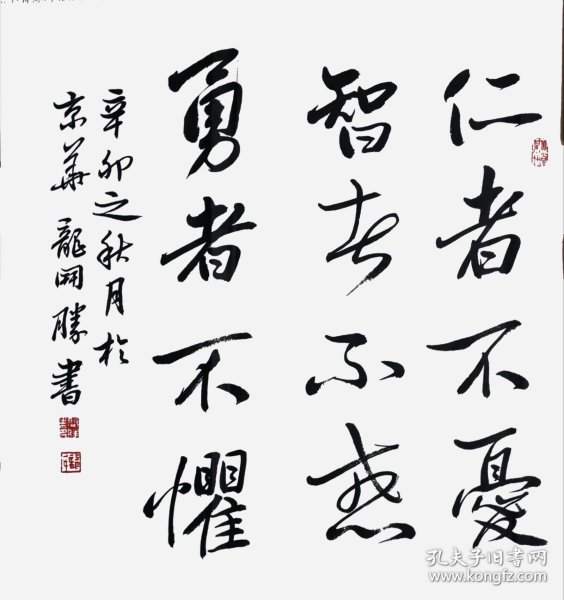 仁者不憂
智者不惑
勇者不懼
辛卯之秋月於
京華龍開勝書
孔夫子旧书网
www.kongfz.com